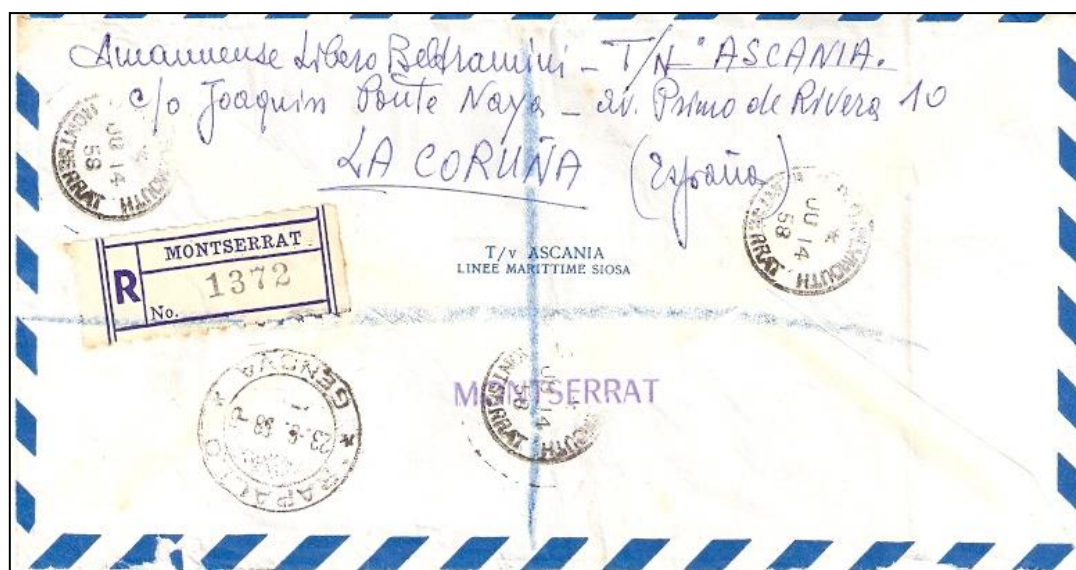 Amanuense Libero Beltramini – T/N "ASCANIA.
c/o Joaquin Ponte Naya – av. Primo de Rivera 10
LA CORUÑA (España)
MONTSERRAT
JU 14
58
MONTSERRAT
JU 14
58
MONTSERRAT
R
No. 1372
T/v ASCANIA
LINEE MARITTIME SIOSA
GENOVA
RAPALLO
MONTSERRAT
MONTSERRAT
JU 14
58